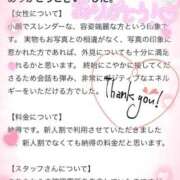 【女性について】
小顔でスレンダーな、容姿端麗な方という印象で
す。実物もお写真との相違がなく、写真の印象に
惹かれた方であれば、外見についても十分に満足
されるかと思います。気さくに接してくださった
ため会話も弾み、非常にポジティブなエネル
ギーをいただける方でした。
Thank you!
【料金について】
納得です。新人割で利用させていただきました
が、新人割でなくても納得の料金だと思います。
【スタッフさんについて】